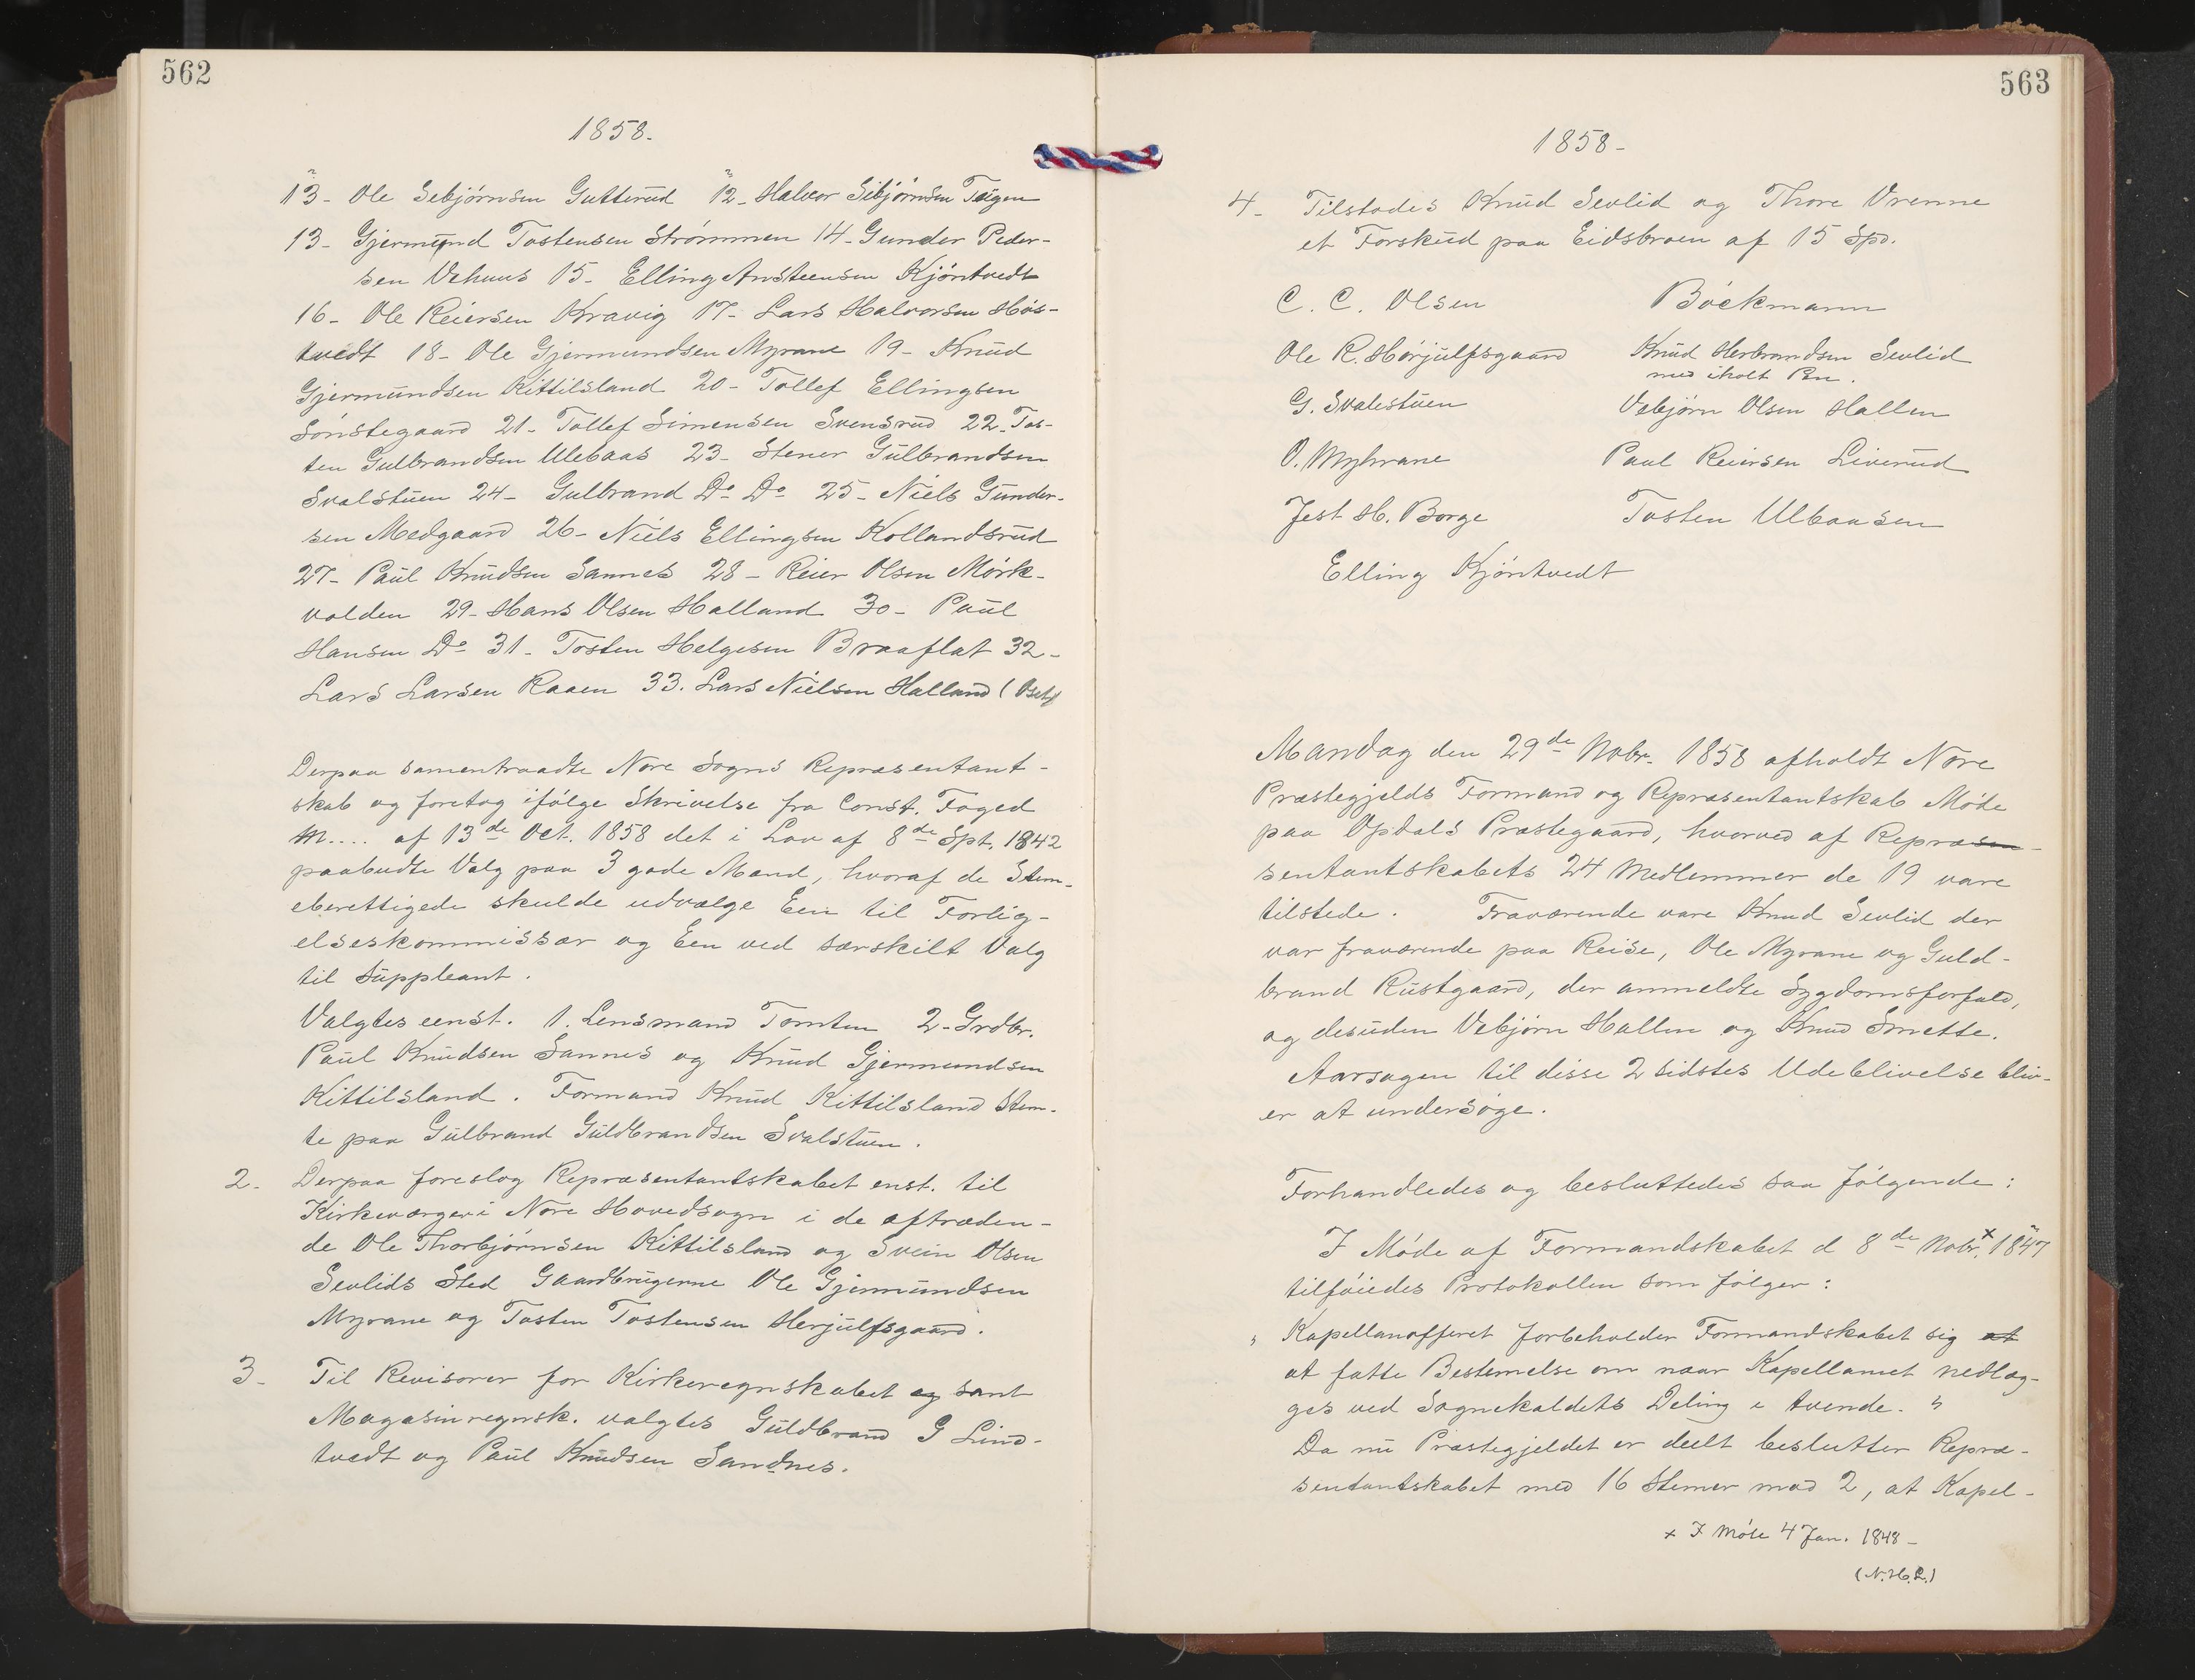 562
1858.
13- Ole Sebjørnsen Gutterud 12- Halvor Sibjørnsen Teigen
13- Gjermund Tostensen Strømmen 14- Gunder Peder-
sen Vehuus 15- Elling Ansteensen Kjöntvedt
16- Ole Reiersen Kravig 17- Lars Halvorsen Hös-
tvedt 18- Ole Gjermundsen Myrane 19- Knud
Gjermundsen Kittilsland 20- Tollef Ellingsen
Sönstegaard 21- Tollef Simensen Svensrud 22. Tos-
ten Gulbrandsen Ulebaas 23- Stener Gulbrandsen
Svalstuen 24- Gulbrand Do Do 25- Niels Gunder-
sen Medgaard 26- Niels Ellingsen Kollandsrud
27- Paul Knudsen Sannes 28- Reier Olsen Mörk-
volden 29- Hans Olsen Halland 30- Paul
Hansen Do 31- Tosten Helgesen Braaflat 32-
Lars Larsen Raaen 33. Lars Nielsen Halland
Derpaa samentraadte Nore Sogns Repræsentant-
skab og foretog ifølge Skrivelse fra Const. Foged
M.... af 13de Oct. 1858 det i Lov af 8de Spt. 1842
paabudte Valg paa 3 gode Mænd, hvoraf de Stem-
eberettigede skulde udvælge Een til Forlig-
elseskommissær og Een ved særskilt Valg
til Suppleant.
Valgtes eenst. 1. Lensmand Tomten 2- Grdbr.
Paul Knudsen Sannes og Knud Gjermundsen
Kittilsland. Formand Knud Kittilsland Stem-
te paa Gulbrand Guldbrandsen Svalstuen.
2. Derpaa foreslog Repræsentantskabet enst. til
Kirkeværger i Nore Hovedsogn i de aftræden-
de Ole Thorbjørnsen Kittilsland og Svein Olsen
Sevlids Sted Gaardbrugerne Ole Gjermundsen
Myrane og Tosten Tostensen Herjulfsgaard.
3- Til Revisorer for Kirkeregnskabet og samt
Magasinregnsk. valgtes Guldbrand G Lind-
tvedt og Paul Knudsen Sandnes.
563
1858-
4- Tilstodes Knud Sevlid og Thore Vrenne
et Forskud paa Eidsbroen af 15 Spd.
C. C. Olsen Böckmann
Ole R. Hørjulfsgaard Knud Herbrandsen Sevlid
med iholt Pen.
G. Svalestuen Vebjörn Olsen Hallen
O. Myhrane Paul Reiersen Liverud
Jest H. Borge Tosten Ulbaasen
Elling Kjöntvedt
Mandag den 29de Nobr. 1858 afholdt Nore
Præstegjelds Formand og Repræsentantskab Møde
paa Opdals Præstegaard, hvorved af Repræsen-
sentantskabets 24 Medlemmer de 19 vare
tilstede. Fraværende vare Knud Sevlid der
var fraværende paa Reise, Ole Myrane og Guld-
brand Rustgaard, der anmeldte Sygdomsforfald,
og desuden Vebjørn Hallen og Knud Smette.
Aarsagen til disse 2 sidstes Udeblivelse bliv-
er at undersøge.
Forhandledes og besluttedes saa følgende:
I Møde af Formandskabet d 8de Nobr.x 1847
tilføiedes Protokollen som følger:
" Kapellanofferet forbeholder Formandskabet sig at
at fatte Bestemelse om naar Kapellaniet nedlæg-
ges ved Sognekaldets Deling i tvende. "
Da nu Præstegjeldet er deelt beslutter Repræ-
sentantskabet med 16 Stemer mod 2, at Kapel-
x I Møte 4 Jan. 1848-
(N.H.L.)